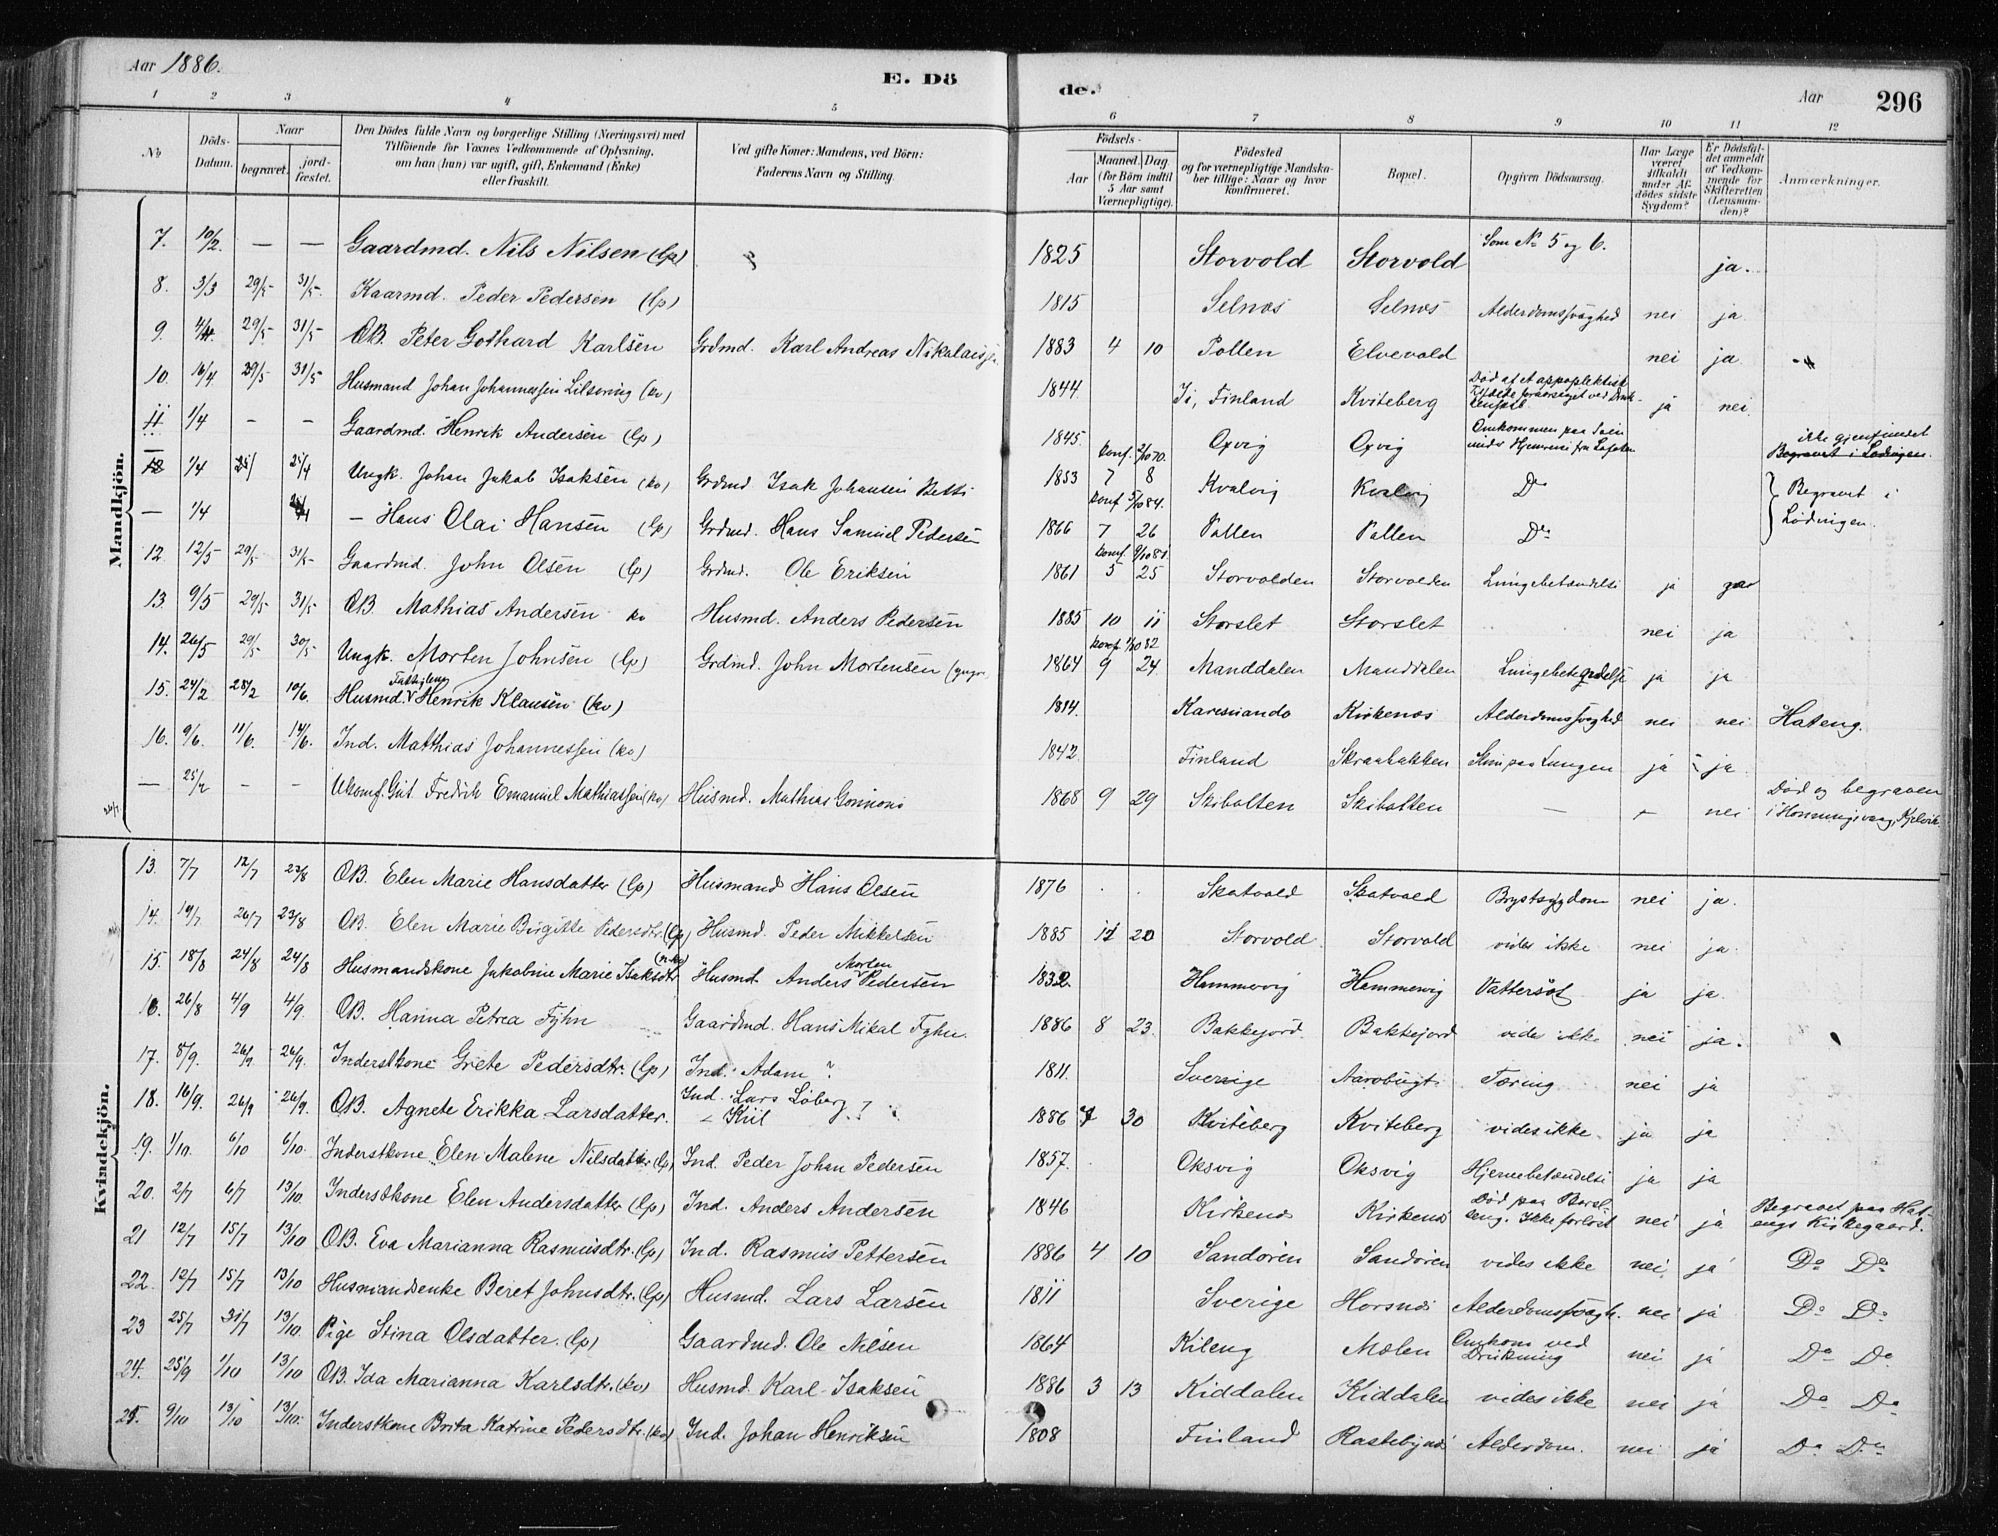 Aar 1886. E. Dö de. Aar 296
1 2 3 4 5 6 7 8 9 10 11 12
No Döds-Datum. Naar begravet. jord-fæstet. Den Dödes fulde Navn og borgerlige Stilling (Næringsvei) med Tilföiende for Voxnes Vedkommende af Oplysning, om han (hun) var ugift, gift, Enkemand (Enke) eller fraskilt. Ved gifte Koner: Mandens, ved Börn: Faderens Navn og Stilling. Födsels- Aar Maaned. Dag (for Börn indtil 5 Aar samt Værnepligtige). Födested og for værnepligtige Mandskaber tillige: Naar og hvor konfirmeret. Bopæl. Opgiven Dödsaarsag. Har Læge været tilkaldt under Afdödes sidste Sygdom? Er Dödsfaldet anmeldt af Vedkommende for Skifteretten (Lensmanden)? Anmærkninger.
Mandkjön.
7. 10/2 — — Gaardmd. Nils Nilsen (Lp) 1825 Storvold Storvold Som No 5 og 6. ja.
8. 3/3 29/5 31/5 Kaarmd. Peder Pedersen (Lp) 1815 Selnæs Selnæs Alderdomssvaghed nei ja.
9. 4/4 29/5 31/5 OB. Peter Gothard Karlsen Grdmd. Karl Andreas Nikolais 1883 4 10 Pollen Elvevold nei ja.
10. 16/4 29/5 31/5 Husmand Johan Johannessen (kv) 1844. Finland Kviteberg Död af et appoplektisk ja nei.
11 1/4 - - Gaardmd. Henrik Andersen (Lp) 1845. Oxvig Oxvig Omkommen paa Söen under Hjemreise fra Lofoten ikke gjenfundet Begravet i Lödingen.
12 1/4 25/4 Ungk. Johan Jakob Isaksen (kv) Grdmd Isak Johansen Betti 1853 7 8 Kvalvig Kvalvig Do Begravet i Lödingen.
— 1/4 — Hans Olai Hansen (Lp) Grdmd. Hans Samuel Pedersen konf 5/10 84. 1866 7 26 Pollen Pollen Do
12 12/5 29/5 31/5 Gaardmd. John Olsen (Lp) Grdmd. Ole Eriksen 1861 5 25 Storvolden Storvolden Lungebetændelse ja
13. 9/5 29/5 31/5 OB. Mathias Andersen kv Husmd. Anders Pedersen 1885 10 11 Storslet Storslet nei ja
14. 26/5 29/5 30/5 Ungk. Morten Johnsen (Lp) Grdmd. John Mortensen konf 1/10 82 1864 9 24 Manddalen Manddalen Lungebetændelse ja ja
15. 24/2 28/2 10/6 Husmd. Henrik Klausen (kv) 1814. Karesuando Kirkenæs Alderdomssvaghed nei nei Hateng.
16. 9/6. 11/6. 14/6. Ind. Matthias Johannessen (kv) 1842. Finland Skraabakken Sting paa Lungen ja ja
— 25/2 - - Ukonf. Gut Fredrik Emanuel Mathiassen (kv) Husmd. Mathias 1868 9 29 Skibotten Skibotten — nei Död og begraven i Honningsvaag, Kjelvik.
Kvindekjön.
13. 7/7 12/7 23/8 OB. Elen Marie Hansdatter (Lp) Husmand Hans Olsen 1876 Skatvold Skatvold Brystsygdom nei ja.
14. 19/7 26/7 23/8 OB. Elen Marie Birgitte Pedersdtr. (Lp) Husmd. Peder Mikkelsen 1885 11 20 Storvold Storvold vides ikke nei ja.
15. 18/8 24/8 24/8 Husmandskone Jakobine Marie Isaksdtr Husmd. Anders Morten Pedersen 1832. Hammervig Hammervig Vattersot ja ja.
16. 26/8 4/9 4/9. OB. Hanna Petrea Fyhn Gaardmd. Hans Mikal Fyhn. 1886 8 23. Bakkejord Bakkejord vide ikke nei ja.
17. 8/9. 26/9 26/9. Inderstkone Grete Pedersdtr. (Lp) Ind. Adam ? 1811. Sverige Aarobugt Tæring nei ja
18. 16/9. 26/9 26/9. OB. Agnete Erikka Larsdatter. Ind. Lars Löberg - Kiil ? 1886 7 30 Kviteberg Kviteberg vides ikke. ja ja
19. 1/10. 6/10 6/10. Inderstkone Elen Malene Nilsdatter (Lp) Ind. Peder Johan Pedersen 1857. Oksvig Oksvig Hjernebetændelse ja ja
20. 2/7 6/7 13/10. Inderstkone Elen Andersdatter (Lp) Ind. Anders Andersen 1846 Kirkenæs Kirkenæs Död paa Barselseng. Ikke forlöst nei ja Begravet paa Hatengs Kirkegaard.
21 12/7 15/7 13/10 OB. Eva Marianna Rasmusdtr. (Lp) Ind. Rasmus Pettersen 1886 4 10 Sandören Sandören vides ikke nei. ja Do Do
22. 12/7 15/7 13/10 Husmandsenke Beret Johnsdtr. (Lp) Husmd. Lars Larsen 1811 Sverige Horsnæs Alderdomssvagh. nei ja Do Do
23 25/7 31/7 13/10. Pige Stina Olsdatter. (Lp) Gaardmd. Ole Nilsen 1864 Kileng Mælen Omkom ved Drukning nei ja Do Do
24. 25/9 1/10 13/10 OB. Ida Marianna Karlsdtr. (kv) Husmd. Karl Isaksen 1886 3 13 Kiddalen Kiddalen vides ikke nei ja Do Do
25. 9/10 13/10 13/10. Inderstkone Brita Katrine Pedersdtr. (kv) Ind. Johan Henriksen 1808 Finland Rastebynæs Alderdom. nei ja Do Do